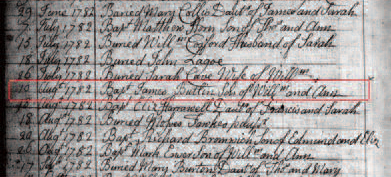 29 June 1782 Buried Mary Collis Daut.r of James and Sarah
7 July 1782 Bap.t Matthew Horn Son of Tho.s and Ann
15 July 1782 Buried Will.m Husband of Sarah
18 July 1782 Buried John Lagoe
26 July 1782 Buried Sarah Cave Wife of Will.m
10 Aug.t 1782 Bap.t James Butlin Son of Will.m and Ann
Aug.t 1782 Bap.t Daut.r of Frances and Sarah
18 Aug.t 1782 Buried
20 Aug.t 1782 Bap.t Richard Bromwich Son of Edmund and Eliz
20 Aug.t 1782 Bap.t Mark Ewer Son of Will.m and Ann
Aug.t 1782 Buried Mary Burton Daut.r of Tho.s and Mary